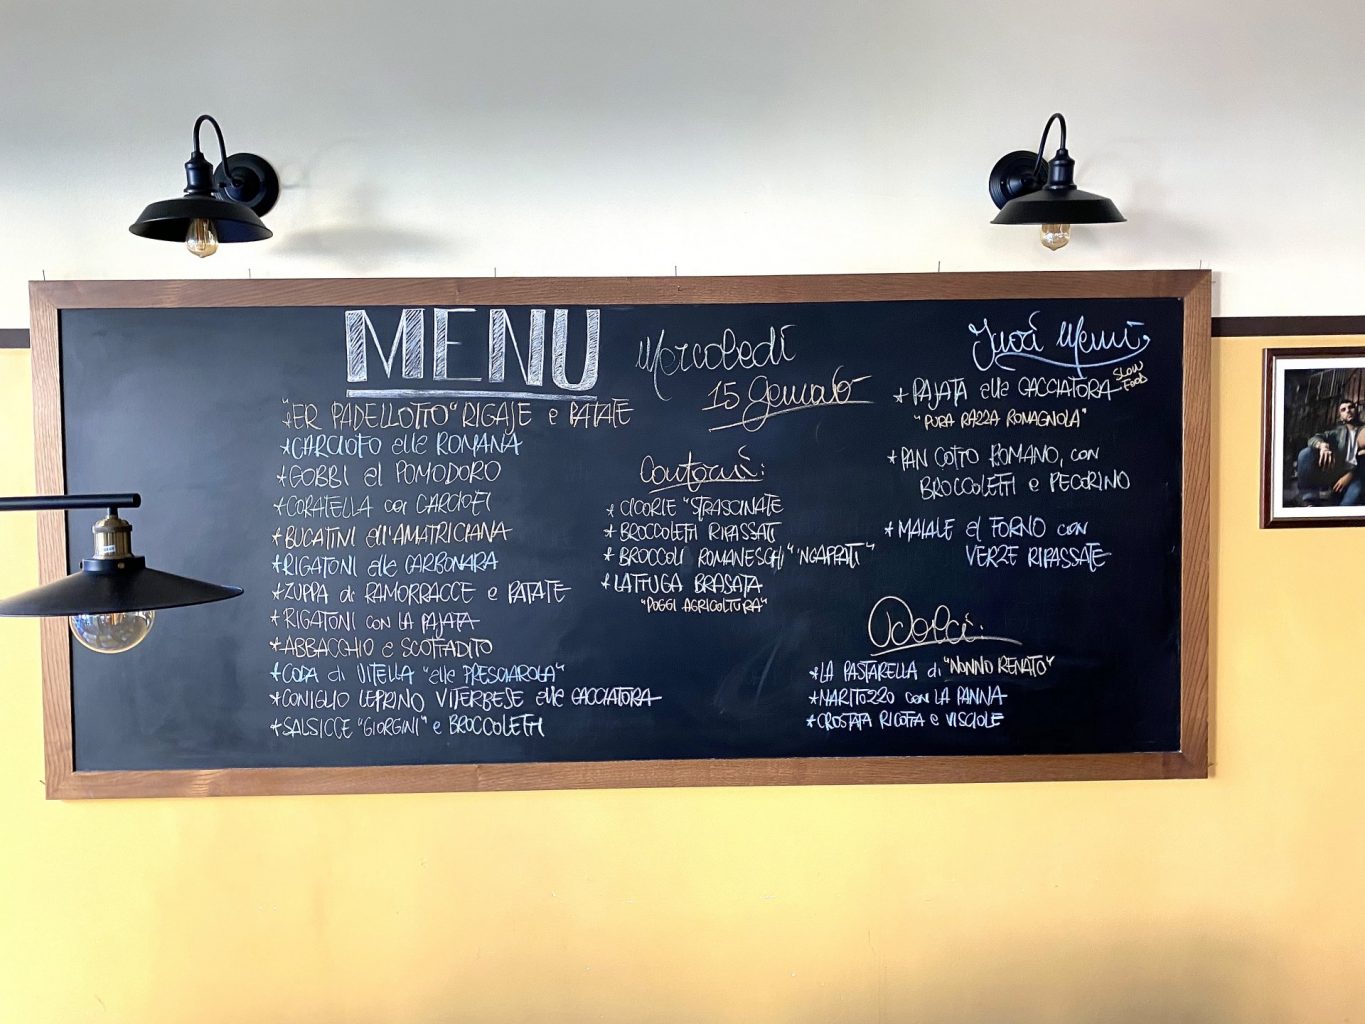 MENU
*"ER PADELLOTTO" RIGAJE e PATATE
*CARCIOFO alla ROMANA
*GOBBI al POMODORO
*CORATELLA coi CARCIOFI
*BUCATINI all'AMATRICIANA
*RIGATONI alla CARBONARA
*ZUPPA di RAMORRACCE e PATATE
*RIGATONI con LA PAJATA
*ABBACCHIO a SCOTTADITO
*CODA di VITELLA "alla PRESCIAROLA"
*CONIGLIO LEPRINO VITERBESE alla CACCIATORA
*SALSICCE "GIORGINI" e BROCCOLETTI
Mercoledì
15 Gennaio
Contorni:
* CICORIE "STRASCINATE
* BROCCOLETTI RIPASSATI
* BROCCOLI ROMANESCHI "'NGAPPATI"
* LATTUGA BRASATA
"POGGI AGRICOLTURA"
Fuori Menu
* PAJATA alla CACCIATORA SLOW FOOD
"PURA RAZZA ROMAGNOLA"
* PAN COTTO ROMANO, con
BROCCOLETTI e PECORINO
* MAIALE al FORNO con
VERZE RIPASSATE
Dolci:
*LA PASTARELLA di "NONNO RENATO"
*MARITOZZO con LA PANNA
*CROSTATA RICOTTA e VISCIOLE